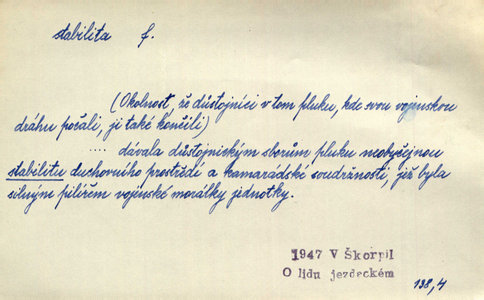 stabilita f.
(Okolnost, že důstojníci v tom pluku, kde svou vojenskou
dráhu počali, ji také končili)
.... dávala důstojnickým sborům pluku neobyčejnou
stabilitu duchovního prostředí a kamarádské soudržnosti, jež byla
silným pilířem vojenské morálky jednotky.
1947 V Škorpil
O lidu jezdeckém
138,4